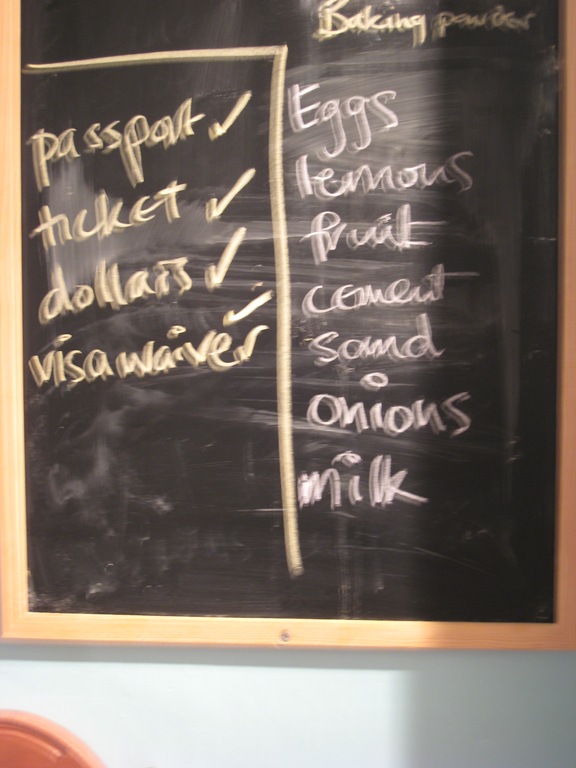 Baking powder
passport
ticket
dollars
visa waiver
Eggs
lemons
fruit
cement
sand
onions
milk